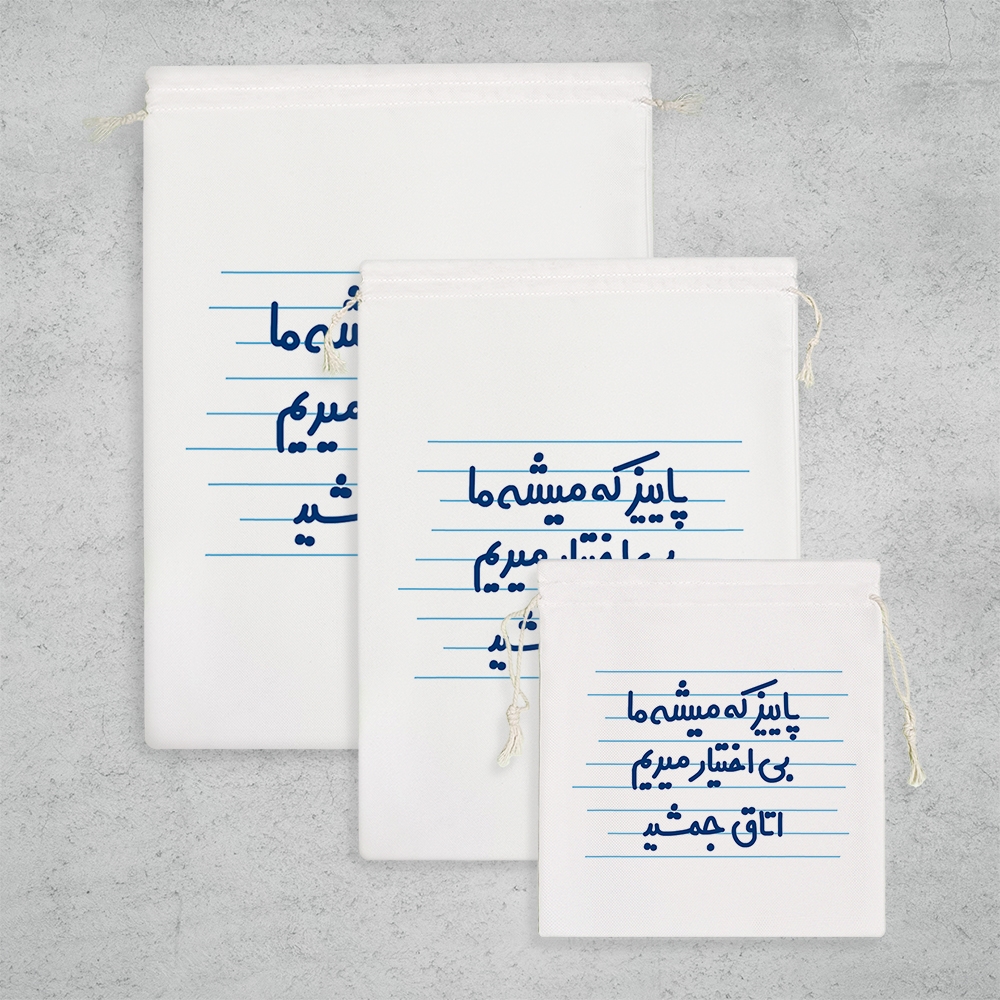 شه ما
میریم
شید
پاییز که میشه ما
بی اختیار میریم
شید
پاییز که میشه ما
بی اختیار میریم
اتاق جمشید